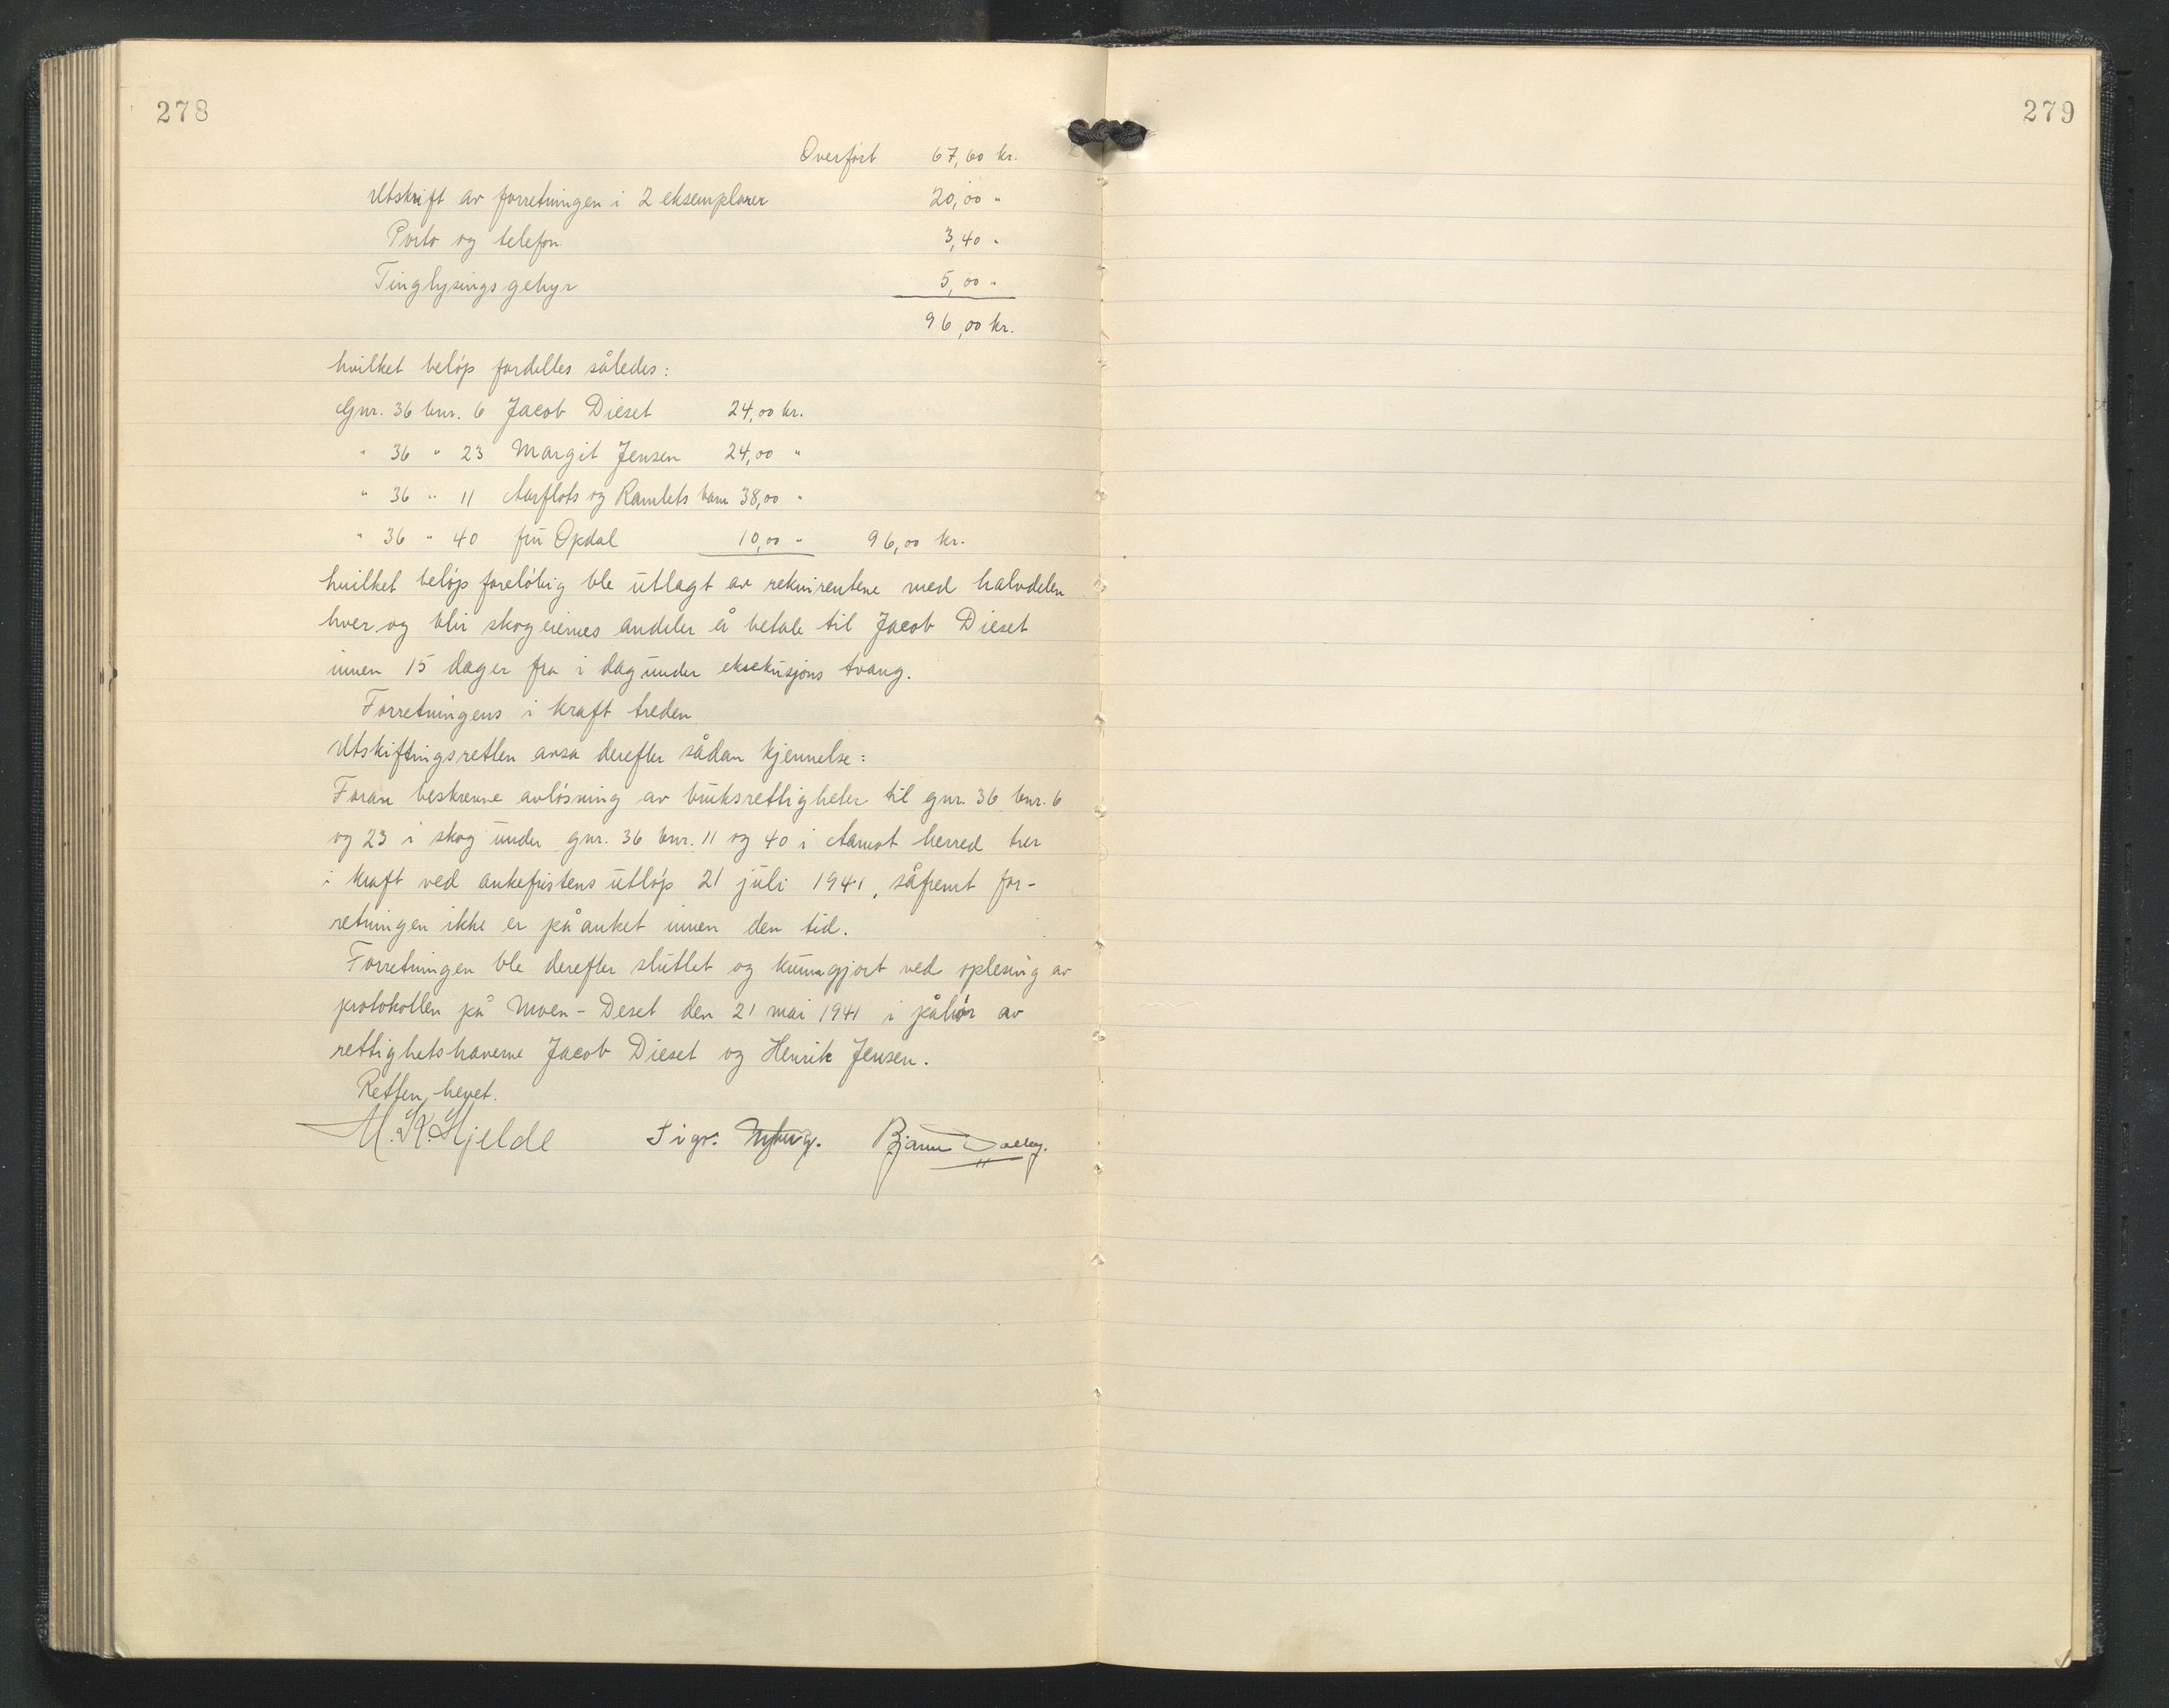 278
279
Overført 67,60 kr.
Utskrift av forretningen i 2 eksemplarer 20,00 "
Porto og telefon 3,40 "
Tinglysingsgebyr 5,00 "
96,00 kr.
hvilket beløp fordelles således:
Gnr. 36 bnr. 6 Jacob Dieset 24,00 kr.
" 36 " 23 Margit Jensen 24,00 "
" 36 " 11 Aarflots og Ramlets barn 38,00 "
" 36 " 40 fru Opdal 10,00 " 96,00 kr.
hvilket beløp foreløbig ble utlagt av rekvirentene med halvdelen
hver og blir skogeiernes andeler å betale til Jacob Dieset
innen 15 dager fra i dag under eksekusjons tvang.
Forretningens i kraft treden
Utskiftingsretten avsa derefter sådan kjennelse:
Foran beskrevne avløsning av bruksrettigheter til gnr. 36 bnr. 6
og 23 i skog under gnr. 36 bnr. 11 og 40 i Aamot herred trer
i kraft ved ankefristens utløp 21 juli 1941, såfremt for-
retningen ikke er påanket innen den tid.
Forretningen ble derefter sluttet og kunngjort ved oplesing av
protokollen på Moen - Deset den 21 mai 1941 i påhør av
rettighetshaverne Jacob Dieset og Henrik Jensen.
Retten hevet.
M. K. Hjelde Sigv. Nyberg. Bjarne